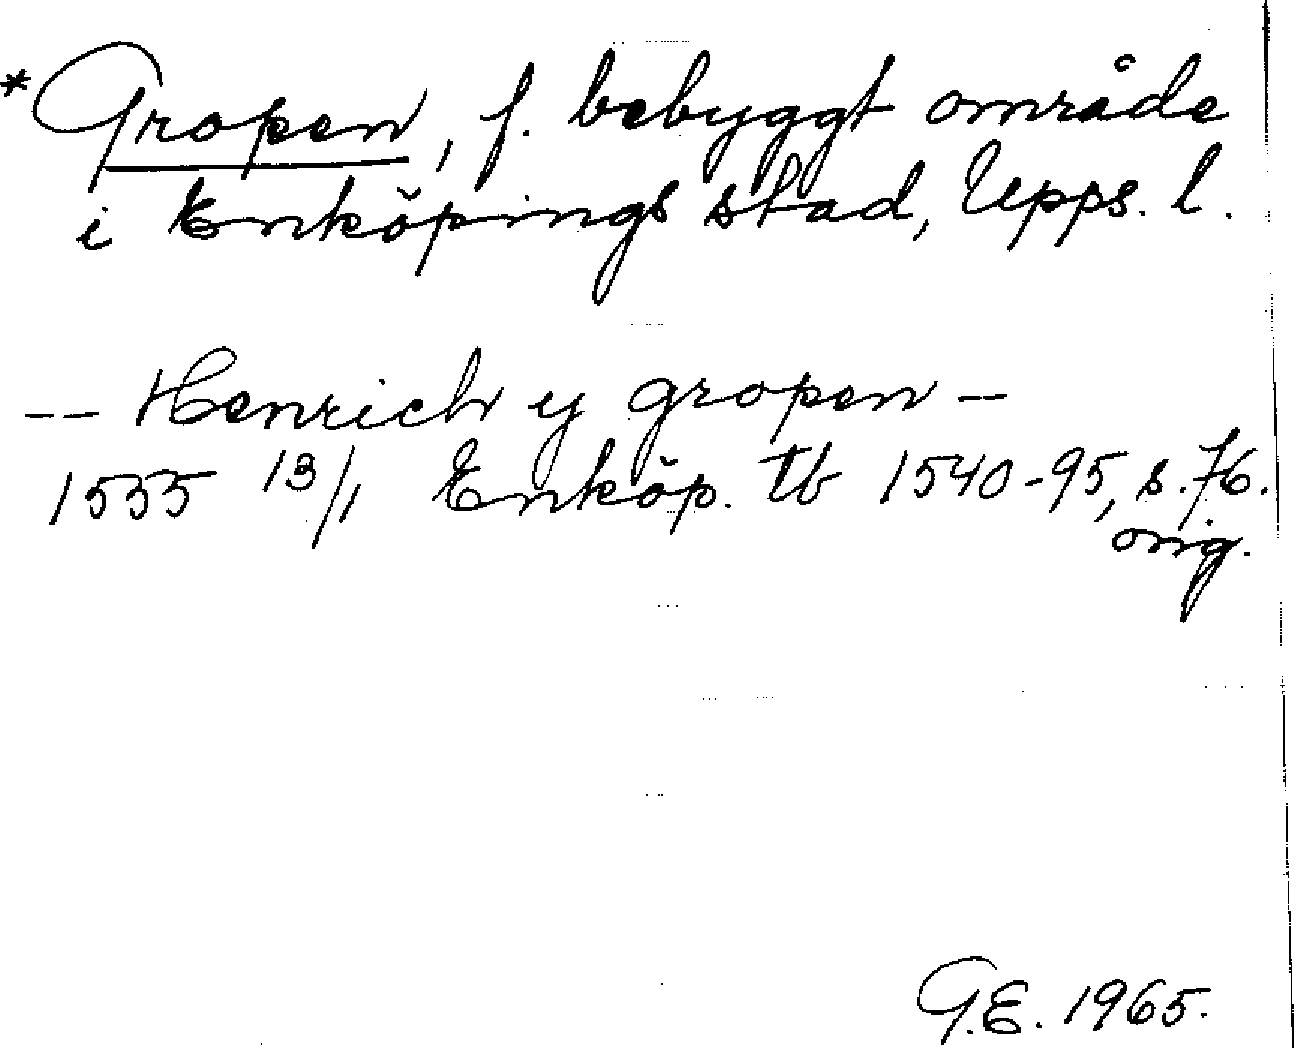 *Gropen, f. bebyggt område
i Enköpings stad, Upps. l.
-- Henrich y gropen --
1555 13/1 Enköp. tb 1540-95, s. 76.
orig.
G.E. 1965.